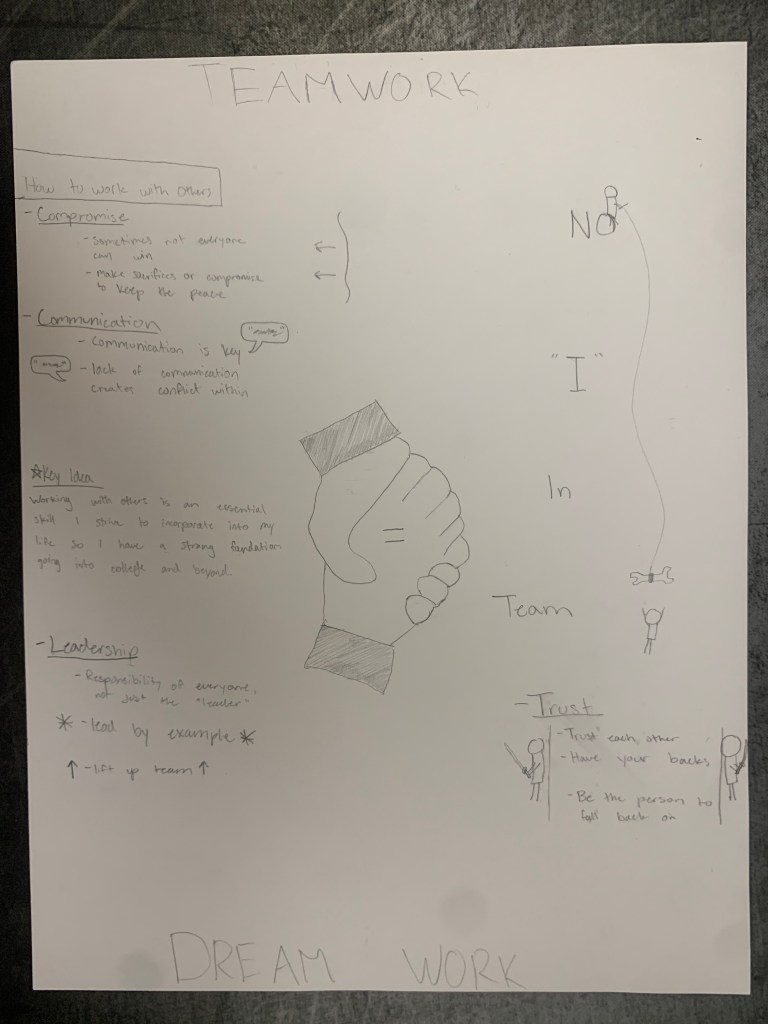 TEAMWORK
How to work with others
- Compromise
- sometimes not everyone
can win
- make sacrifices or compromise
to keep the peace
- Communication
- Communication is key
- lack of communication
creates conflict within
☆Key Idea
Working with others is an essential
skill I strive to incorporate into my
life so I have a strong foundation
going into college and beyond.
- Leadership
- Responsibility of everyone,
not just the "leader"
* - lead by example *
↑ - lift up team ↑
NO
"I"
In
Team
- Trust
- Trust each other
- Have your backs
- Be the person to
fall back on
DREAM WORK